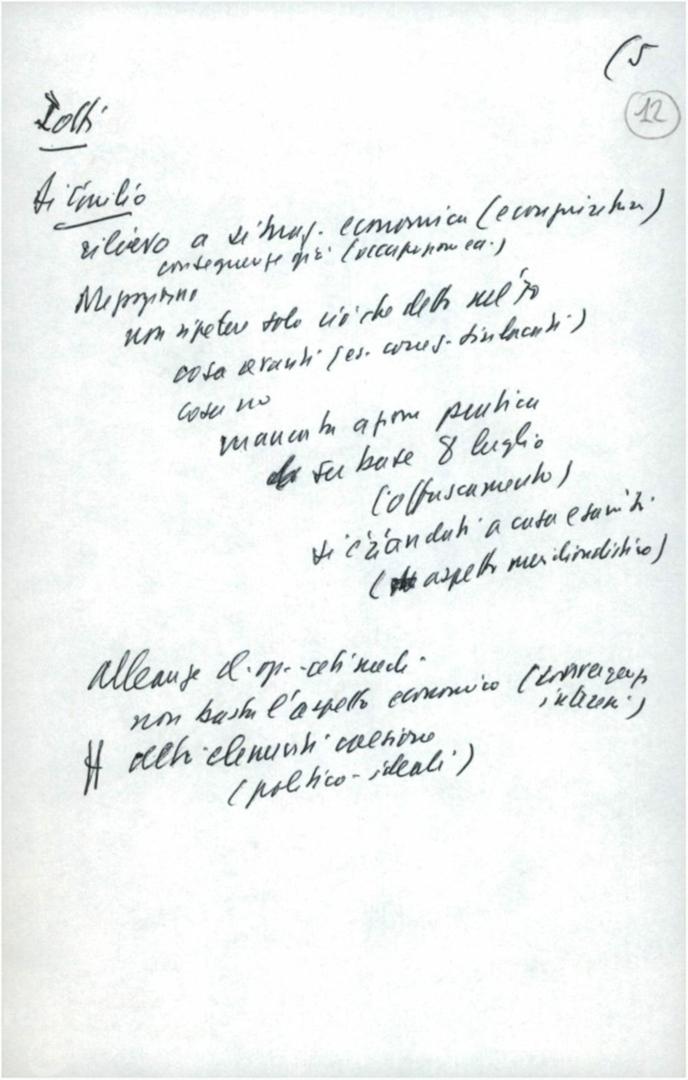 (5
12
Di Giulio
rilievo a situaz. economica (congiuntura)
conseguenze già (occupazione ecc.)
Mezzogiorno
non ripetere solo ciò che detto nel '70
cosa avanti (es. conf. sindacati)
cosa no
mancata azione pratica
su base 8 luglio
(offuscamento)
si è andati a casa esaminati
(aspetto meridionalistico)
alleanze cl. op. - ceti medi
non basta l'aspetto economico (convergenza
interessi)
altri elementi coesione
(politico-ideali)